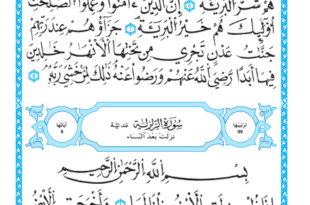 هُمْ شَرُّ ٱلْبَرِيَّةِ ۝ إِنَّ ٱلَّذِينَ ءَامَنُوا۟ وَعَمِلُوا۟ ٱلصَّٰلِحَٰتِ
أُو۟لَٰٓئِكَ هُمْ خَيْرُ ٱلْبَرِيَّةِ ۝ جَزَآؤُهُمْ عِندَ رَبِّهِمْ
جَنَّٰتُ عَدْنٍ تَجْرِى مِن تَحْتِهَا ٱلْأَنْهَٰرُ خَٰلِدِينَ
فِيهَآ أَبَدًا رَّضِىَ ٱللَّهُ عَنْهُمْ وَرَضُوا۟ عَنْهُ ذَٰلِكَ لِمَنْ خَشِىَ رَبَّهُۥ
ترتيبها ٩٩ سُورَةُ ٱلزَّلْزَلَةِ مدنية آياتها ٨
نزلت بعد النساء
بِسْمِ ٱللَّهِ ٱلرَّحْمَٰنِ ٱلرَّحِيمِ